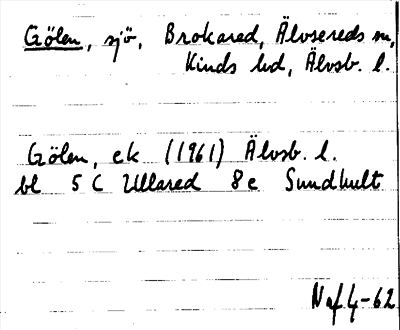 Gölen, sjö, Brokared, Älvsereds sn,
Kinds hd, Älvsb. l.
Gölen, ek (1961) Älvsb. l.
bl 5 C Ullared 8 e Sundhult
NafLj-62